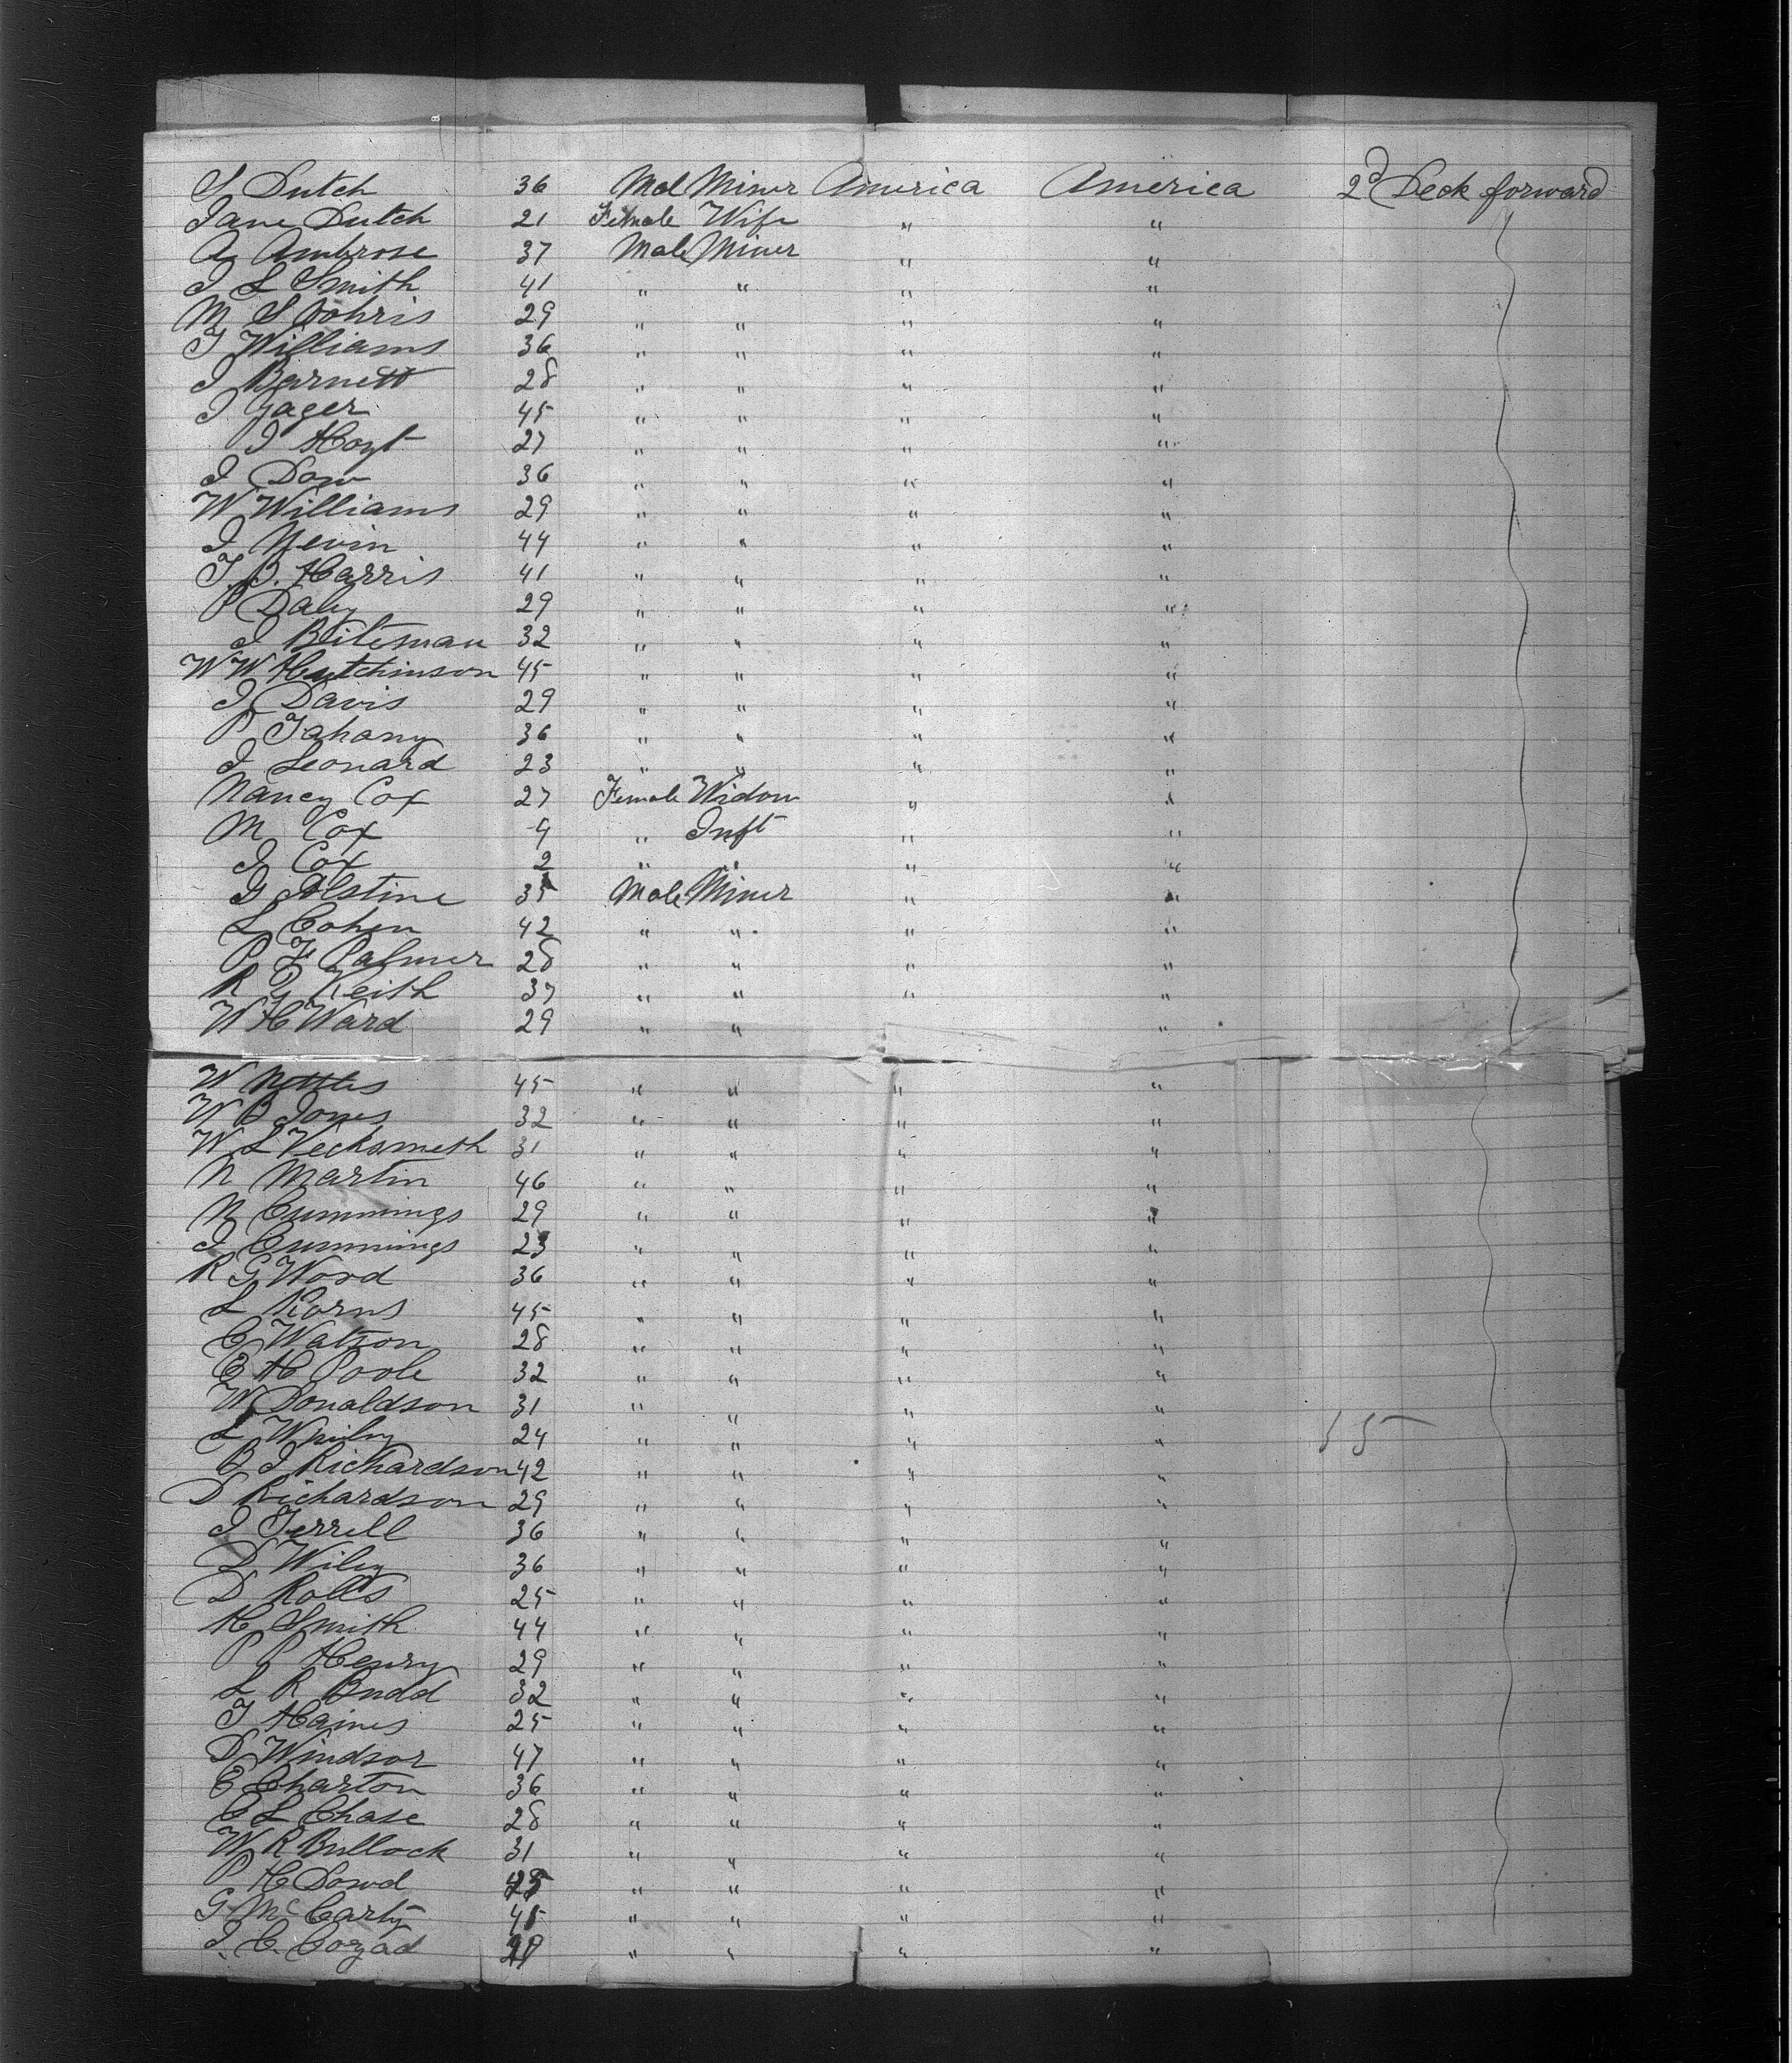 S Dutch 36 Mal Miner America America 2d Deck forward
Jane Dutch 21 Female Wife " "
A Ambrose 37 Male Miner " "
J L Smith 41 " " " "
M S 29 " " " "
T Williams 36 " " " "
J Barnett 28 " " " "
J Yager 45 " " " "
J Hoyt 27 " " " "
J Dow 36 " " " "
W Williams 29 " " " "
J Nevin 44 " " " "
T. B. Harris 41 " " " "
P Daly 29 " " " "
J Biteman 32 " " " "
W W Hutchinson 45 " " " "
J Davis 29 " " " "
P Fahany 36 " " " "
J Leonard 23 " " " "
Nancy Cox 27 Female Widow " "
M Cox 4 " Inft " "
J Cox 2 " " " "
G Alstine 35 Male Miner " "
L Cohen 42 " " " "
P F Palmer 28 " " " "
R G Keith 37 " " " "
W H Ward 29 " " " "
W Nettles 45 " " " "
W B Jones 32 " " " "
W L Vecksmeth 31 " " " "
N Martin 46 " " " "
N Cummings 29 " " " "
J Cummings 23 " " " "
R G Word 36 " " " "
L Korns 45 " " " "
C Watson 28 " " " "
E H Poole 32 " " " "
W Donaldson 31 " " " "
L 24 " " " " 15
B J Richardson 42 " " " "
D Richardson 29 " " " "
J Terrell 36 " " " "
D Wiley 36 " " " "
D Rolls 25 " " " "
H Smith 44 " " " "
P P Henry 29 " " " "
L R Budd 32 " " " "
T Haines 25 " " " "
D Windsor 47 " " " "
E Charton 36 " " " "
C L Chase 28 " " " "
W R Bullock 31 " " " "
P H Dowd " " " "
G McCarty 45 " " " "
J. C. Cozad 29 " " " "